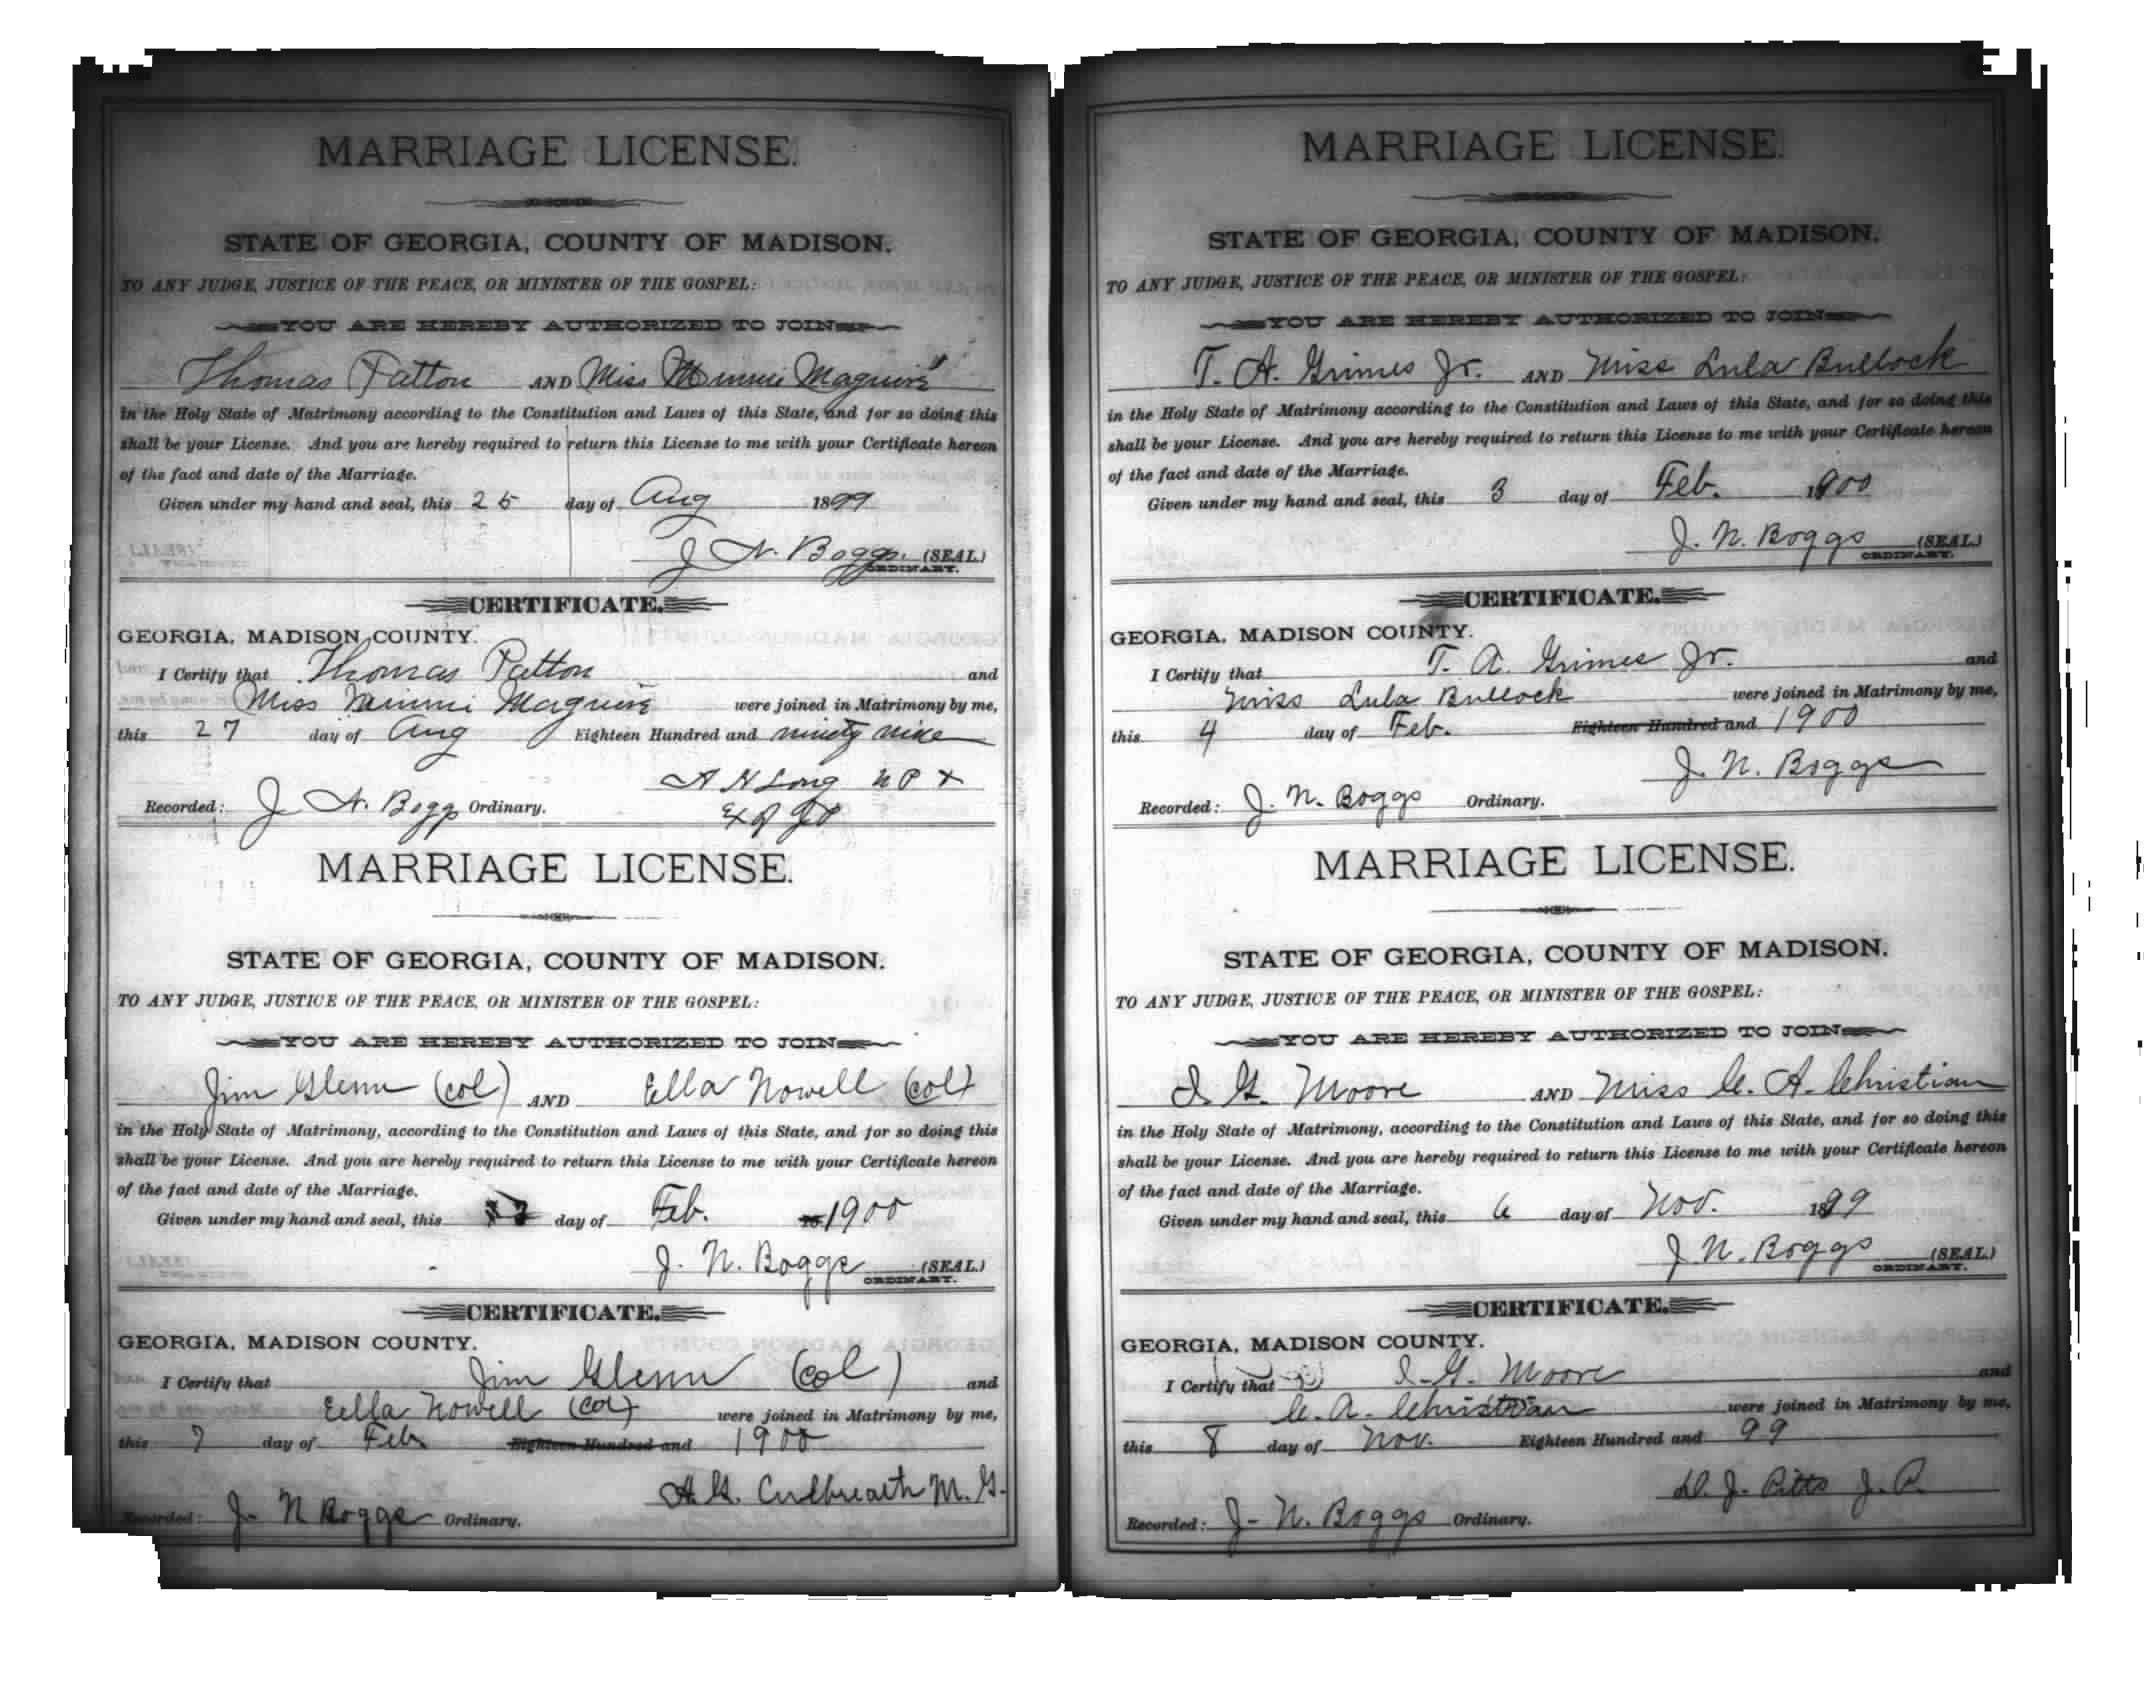 MARRIAGE LICENSE.
STATE OF GEORGIA, COUNTY OF MADISON.
TO ANY JUDGE, JUSTICE OF THE PEACE, OR MINISTER OF THE GOSPEL:
YOU ARE HEREBY AUTHORIZED TO JOIN
Thomas Patton AND Miss Minnie Maguire
in the Holy State of Matrimony according to the Constitution and Laws of this State, and for so doing this
shall be your License. And you are hereby required to return this License to me with your Certificate hereon
of the fact and date of the Marriage.
Given under my hand and seal, this 25 day of Aug 1899
J. N. Boggs. (SEAL.)
ORDINARY.
CERTIFICATE.
GEORGIA, MADISON COUNTY.
I Certify that Thomas Patton and
Miss Minnie Maguire were joined in Matrimony by me,
this 27 day of Aug Eighteen Hundred and ninety nine
A H Long N P &
Recorded: J. N. Boggs Ordinary.
Ex of JP
MARRIAGE LICENSE.
STATE OF GEORGIA, COUNTY OF MADISON.
TO ANY JUDGE, JUSTICE OF THE PEACE, OR MINISTER OF THE GOSPEL:
YOU ARE HEREBY AUTHORIZED TO JOIN
Jim Glenn (Col) AND Ella Nowell (Col)
in the Holy State of Matrimony, according to the Constitution and Laws of this State, and for so doing this
shall be your License. And you are hereby required to return this License to me with your Certificate hereon
of the fact and date of the Marriage.
Given under my hand and seal, this day of Feb. 1900
J. N. Boggs (SEAL.)
ORDINARY.
CERTIFICATE.
GEORGIA, MADISON COUNTY.
I Certify that Jim Glenn (Col) and
Ella Nowell (Col) were joined in Matrimony by me,
this 7 day of Feb Eighteen Hundred and 1900
A. G. Culbreath M. G.
Recorded: J. N Boggs Ordinary.
MARRIAGE LICENSE.
STATE OF GEORGIA, COUNTY OF MADISON.
TO ANY JUDGE, JUSTICE OF THE PEACE, OR MINISTER OF THE GOSPEL:
YOU ARE HEREBY AUTHORIZED TO JOIN
T. A. Grimes Jr. AND Miss Lula Bullock
in the Holy State of Matrimony according to the Constitution and Laws of this State, and for so doing this
shall be your License. And you are hereby required to return this License to me with your Certificate hereon
of the fact and date of the Marriage.
Given under my hand and seal, this 3 day of Feb. 1900
J. N. Boggs (SEAL.)
ORDINARY.
CERTIFICATE.
GEORGIA, MADISON COUNTY.
I Certify that T. A. Grimes Jr. and
Miss Lula Bullock were joined in Matrimony by me,
this 4 day of Feb. Eighteen Hundred and 1900
J. N. Boggs
Recorded: J. N. Boggs Ordinary.
MARRIAGE LICENSE.
STATE OF GEORGIA, COUNTY OF MADISON.
TO ANY JUDGE, JUSTICE OF THE PEACE, OR MINISTER OF THE GOSPEL:
YOU ARE HEREBY AUTHORIZED TO JOIN
I. G. Moore AND Miss C. A. Christian
in the Holy State of Matrimony, according to the Constitution and Laws of this State, and for so doing this
shall be your License. And you are hereby required to return this License to me with your Certificate hereon
of the fact and date of the Marriage.
Given under my hand and seal, this 6 day of Nov. 1899
J. N. Boggs (SEAL.)
ORDINARY.
CERTIFICATE.
GEORGIA, MADISON COUNTY.
I Certify that I. G. Moore and
C. A. Christian were joined in Matrimony by me,
this 8 day of Nov. Eighteen Hundred and 99
D. J. Pitts J. P.
Recorded: J- N. Boggs Ordinary.